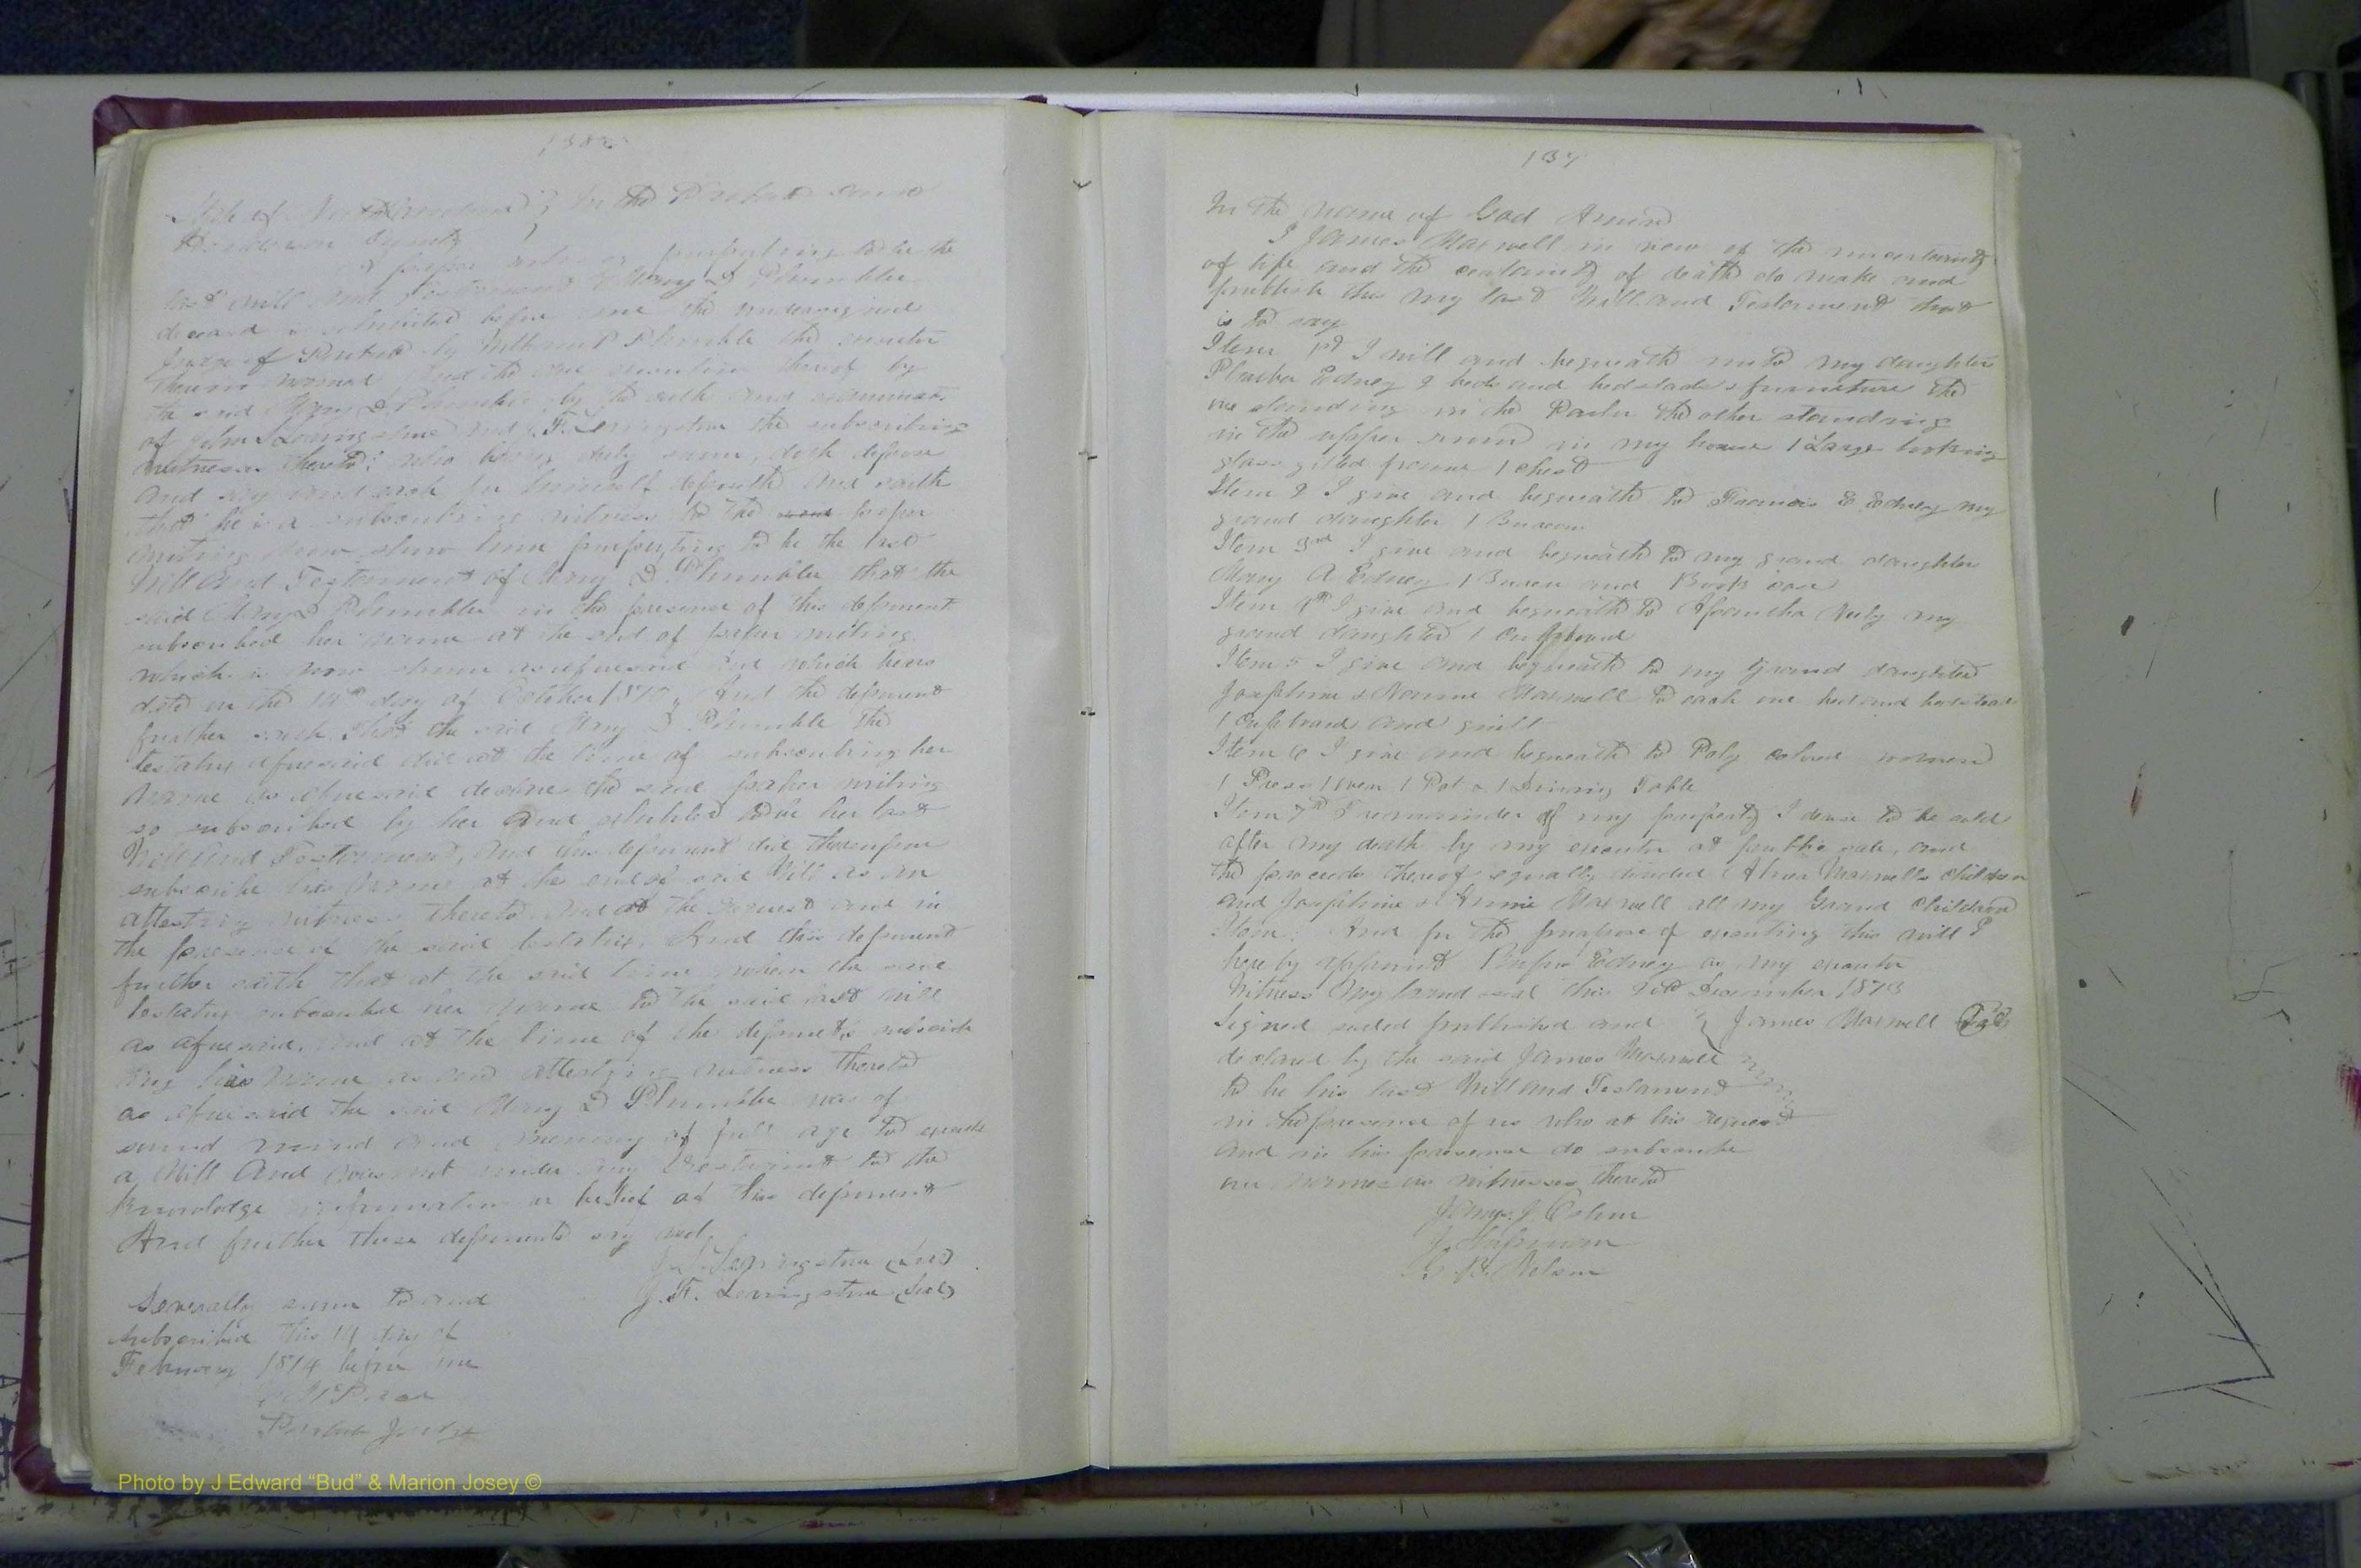 State of North Carolina } In the Probate Court
Henderson County }
A paper writing purporting to be the
last will and Testament of Mary D Plumblee
deceased is exhibited before me the undersigned
Judge of Probate by Plumblee the executor
therein named and the due execution thereof by
the said Mary D Plumblee by the oath and examination
of John Livingstone and J. F. Livingstone the subscribing
witnesses thereto; who being duly sworn, doth depose
and say and each for himself deposeth and saith
that he is a subscribing witness to the paper
writing now shown him purporting to be the last
Will and Testament of Mary D Plumblee that the
said Mary D Plumblee in the presence of this deponent
subscribed her name at the end of paper writing
which is now shown as aforesaid and which bears
date on the day of October 187 And the deponent
further saith that the said Mary D Plumblee the
testatrix aforesaid did at the time of subscribing her
name as aforesaid declare the said paper writing
so subscribed by her and exhibited to be her last
Will and Testament, and this deponent did thereupon
subscribe his name at the end of said Will as an
attesting witness thereto and at the request and in
the presence of the said testatrix. And this deponent
further saith that at the said time when the said
testatrix subscribed her name to the said last will
as aforesaid, and at the time of the deponents subscrib
ing his name as an attesting witness thereto
as aforesaid the said Mary D Plumblee was of
sound mind and memory of full age to execute
a Will and was not under any restraint to the
knowledge information or belief of this deponent
And further these deponents say not
Livingstone (Seal)
J. F. Livingstone (Seal)
Severally sworn to and
subscribed this 14 day of
February 1874 before me
Probate Judge
137
In the name of God Amen
I James Maxwell in view of the uncertainty
of life and the certainty of death do make and
publish this my last Will and Testament that
is to say
Item 1st I will and bequeath unto my daughter
Pheba Edney 2 beds and bedsteads & furniture the
one standing in the Parlor the other standing
in the upper room in my house 1 Large looking
glass gilted frame 1 chest
Item 2 I give and bequeath to E Edney my
grand daughter 1 Bureau
Item 3rd I give and bequeath to my grand daughter
Mary A Edney 1 Bureau and Book case
Item 4th I give and bequeath to my
grand daughter 1 Cupboard
Item 5 I give and bequeath to my Grand daughter
Josephine & Nannie Maxwell to each one bed and bedstead
1 Cupboard and quilt
Item 6 I give and bequeath to Poly colored women
1 Press 1 oven 1 Pot & 1 Dining Table
Item 7th remainder of my property I desire to be sold
after my death by my executor at public sale, and
the proceeds thereof equally divided Maxwells children
and Josephine & Annie Maxwell all my Grand Children
Item. And for the purpose of executing this will I
hereby appoint Rufus Edney as my executor
Witness my hand seal this December 1873
Signed sealed published and } James Maxwell (Seal)
declared by the said James Maxwell
to be his last Will and Testament
in the presence of us who at his request
and in his presence do subscribe
our names as witnesses thereto
Photo by J Edward “Bud” & Marion Josey ©